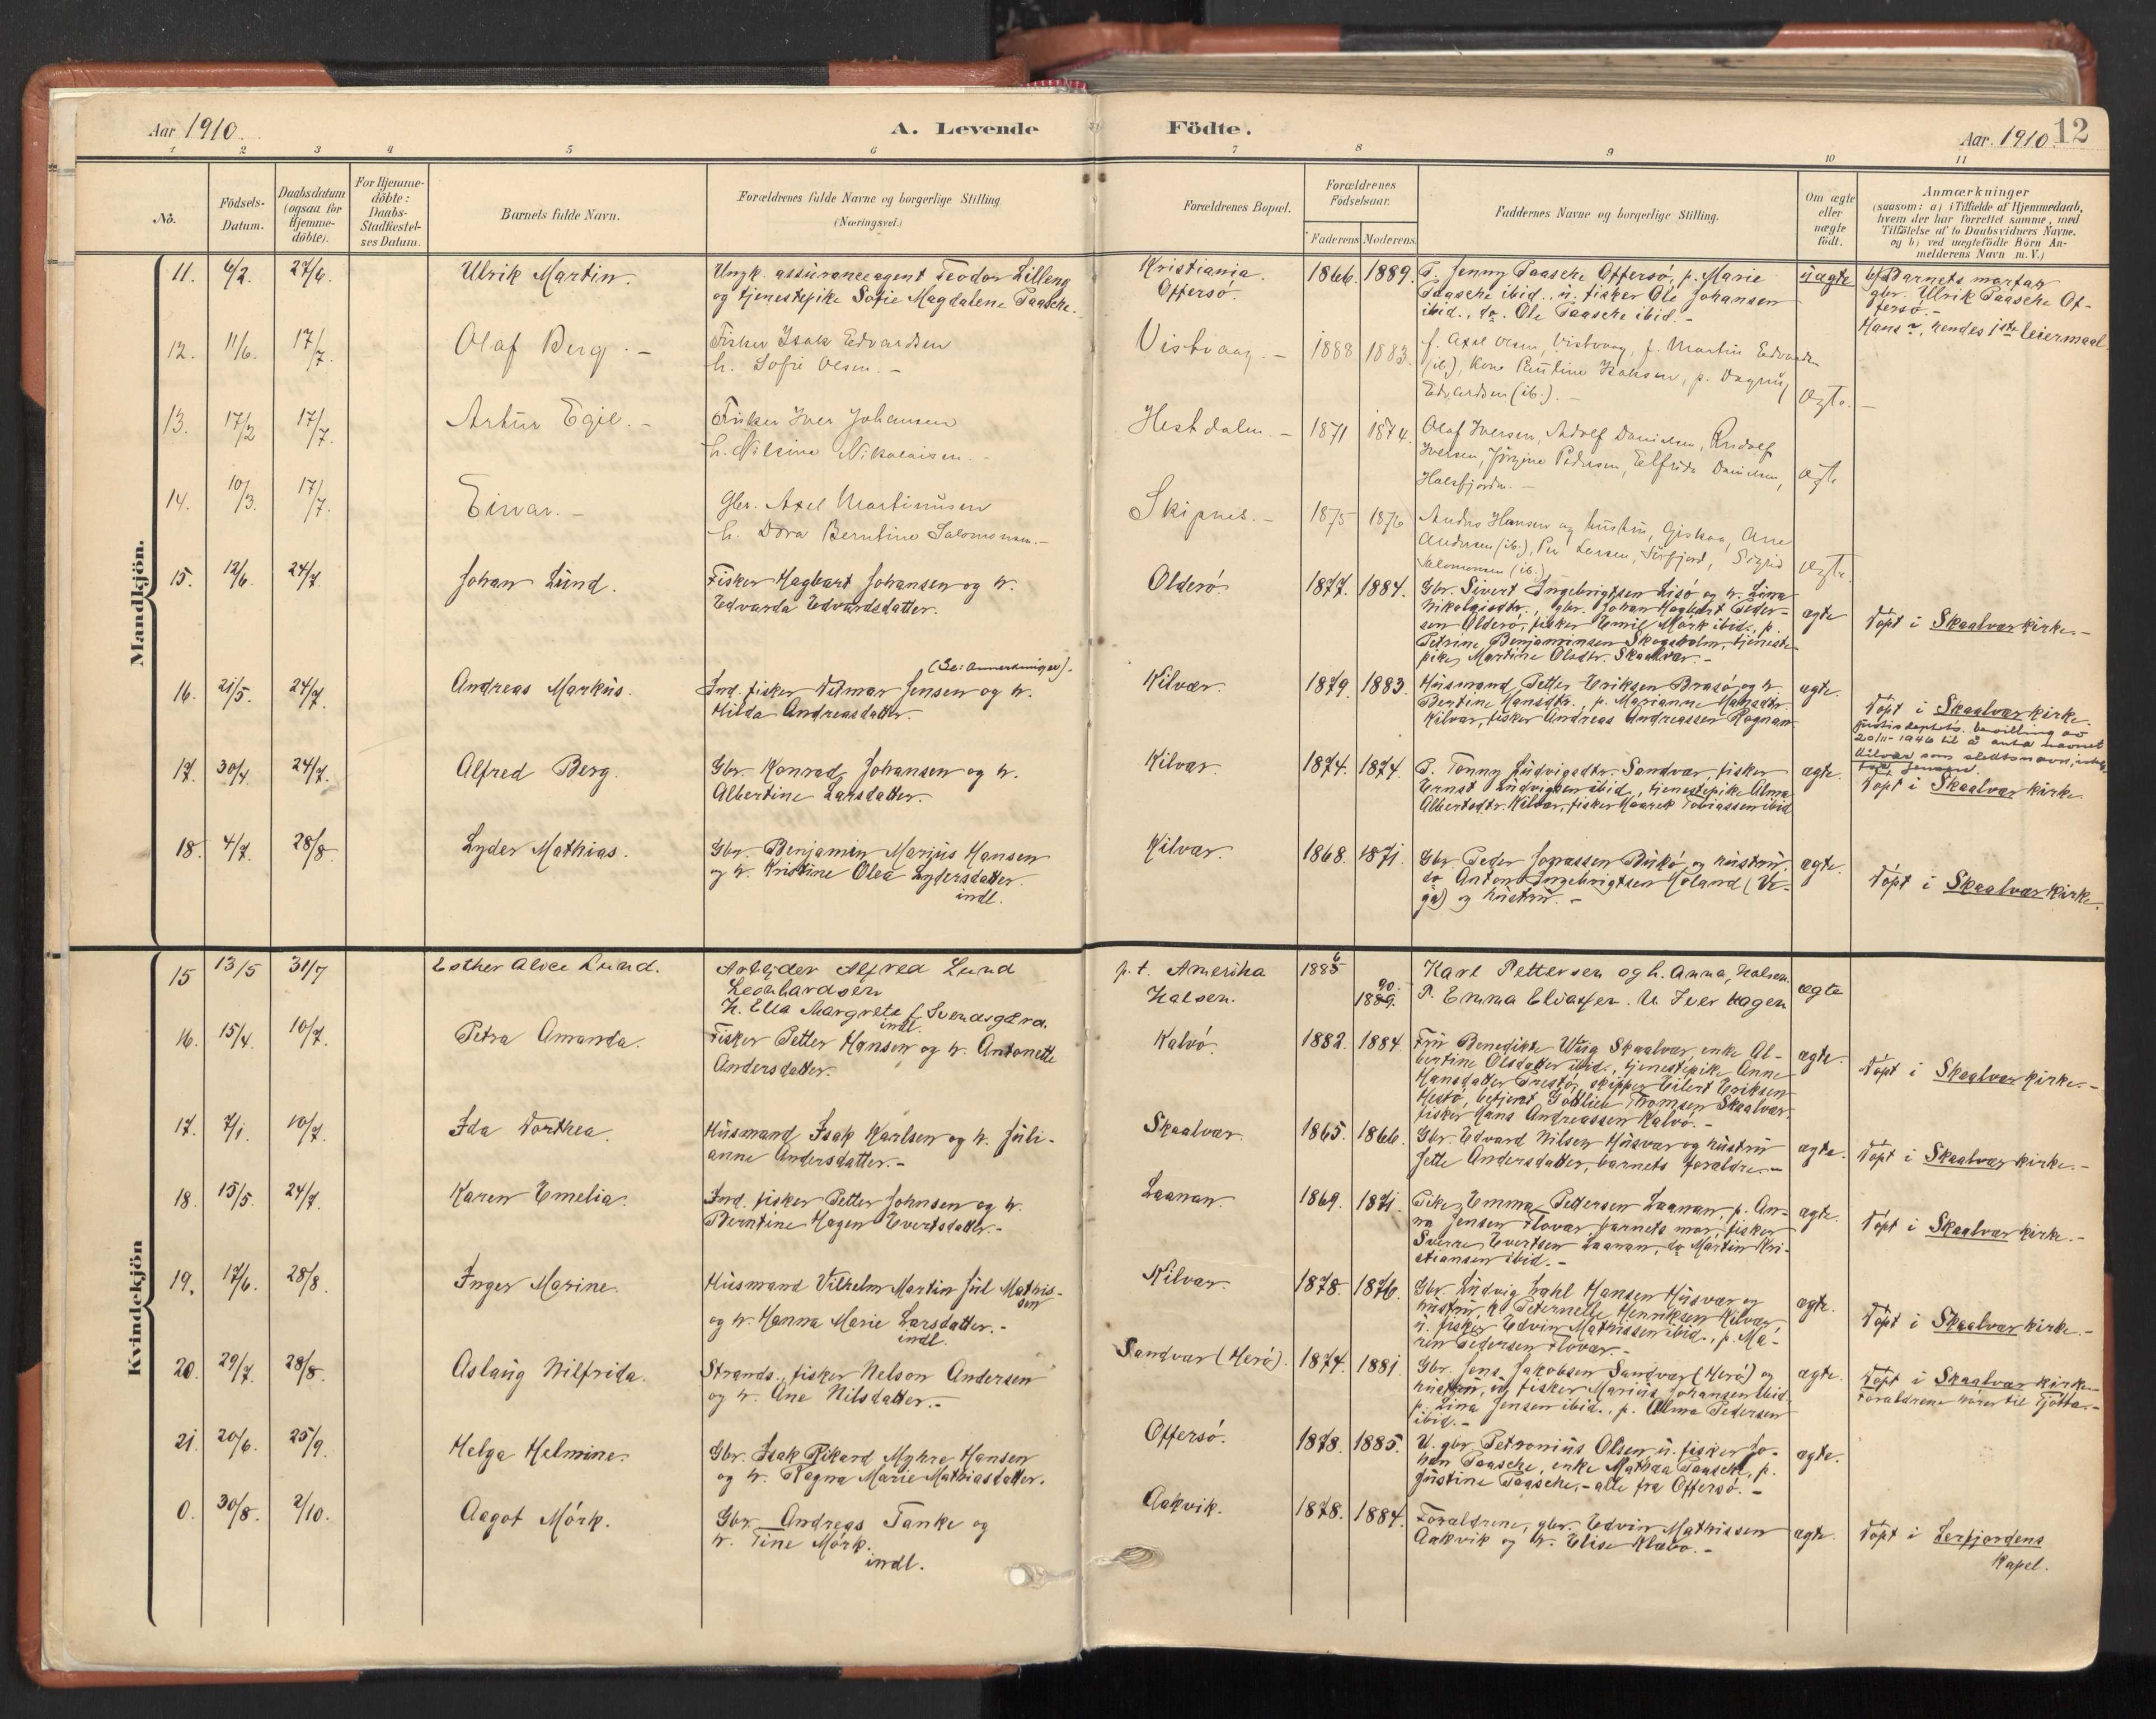 Aar 1910.
A. Levende Födte.
Aar. 1910. 12
1 2 3 4 5 6 7 8 9 10 11
No.
Födsels-Datum.
Daabsdatum (ogsaa for Hjemme-döbte).
For Hjemme-döbte: Daabs-Stadfæstel-ses Datum.
Barnets fulde Navn.
Forældrenes fulde Navne og borgerlige Stilling (Næringsvei.)
Forældrenes Bopæl.
Forældrenes Födselsaar.
Faderens Moderens
Faddernes Navne og borgerlige Stilling.
Om ægte eller uægte födt.
Anmærkninger
(saasom: a) i Tilfælde af Hjemmedaab,
hvem der har forrettet samme, med
Tilföielse af to Daabsvidners Navne.
og b) ved uægtefödte Börn An-
melderens Navn m. V.)
Mandkjön.
11. 6/2. 27/6. Ulrik Martin.
Ungk. assuranceagent Teodor Lilleng
og tjenestepike Sofie Magdalene Paasche.
Kristiania.
Offersö.
1866. 1889.
P. Jenny Paasche Offersö, p. Marie
Paasche ibid., u. fisker Ole Johansen
ibid., do. Ole Paasche ibid.-
uægte
b) Barnets morfar
gbr. Ulrik Paasche Of-
fersö.-
Hans ?, hendes 1ste leiermaal.
12. 11/6. 17/7. Olaf Berg.-
Fisker Isak Edvardsen
h. Sofie Olsen.-
Vistvaag.-
1888 1883.
f. Axel Olsen, Vistvaag, f. Martin Edvardsen
(ib.), Kone Pauline Isaksen, p. Dagny
Edvardsen (ib.).-
ægte.-
13. 17/2 17/7. Artur Egil.-
Fisker Iver Johansen
h. Nilsine Nikolaisen.-
Hestdalen.-
1871 1874.
Olaf Iversen, Adolf Danielsen, Rudolf
Iversen, Jörgine Pedersen, Elfrida Danielsen,
Halsfjorden.-
ægte
14. 10/3. 17/7. Einar.-
Gbr. Axel Martinusen
h. Dora Berntine Salomonsen.-
Skipnes.-
1875 1876
Anders Hansen og hustru, Arne
Andersen (ib.), Per Larsen, Sörfjord, Sigrid
Salomonsen (ib.)
ægte.
15. 12/6. 24/7. Johan Lund.
Fisker Hagbart Johansen og h.
Edvarda Edvardsdatter.
Olderö
1877. 1884.
Gbr. Sivert Ingebrigtsen Lisö og h. Lina
Nikolaisdtr., gbr. Johan Hagbart Peder-
sen Olderö, fisker Emil Mörk ibid., p.
Petrine Benjaminsen Skogsholm, tjeneste-
pike Martine Olsdtr. Skaalvær.-
ægte
Döpt i Skaalvær kirke.-
(Se: anmerkninger).
16. 21/5. 24/7. Andreas Markus.
Ind. fisker Hilmar Jensen og h.
Hilda Andreasdatter.
Kilvær.
1879. 1883.
Husmand Petter Eriksen Brasö og h.
Bertine Hansdtr., p. Marianne Hansdtr.
Kilvær, fisker Andreas Andreassen Rognan
ægte.
Döpt i Skaalvær kirke.
Justisdeptets. bevilling av
20/11-1946 til å anta navnet
Kilvær som slektsnavn,
Jensen.
17. 30/4. 24/7. Alfred Berg.
Gbr. Konrad Johansen og h.
Albertine Larsdatter.
Kilvær.
1874. 1874.
P. Tonny Ludvigsdtr. Sandvær, fisker
Ernst Ludvigsen ibid., tjenestepike Alma
Albertsdtr. Kilvær, fisker Haarek Tobiassen ibid.
ægte.
Döpt i Skaalvær kirke.
18. 4/7. 28/8. Lyder Mathias.
Gbr. Benjamin Marius Hansen
og h. Kristine Olea Lydersdatter.
indl.
Kilvær.
1868. 1871.
Gbr. Peder Jonassen Rukö og hustru,
do Anton Ingebrigtsen Höland (Ve-
ga) og hustru.-
ægte.
Döpt i Skaalvær kirke.
Kvindekjön
15 13/5 31/7 Esther Alvce Lund.
Arbeider Alfred Lund
Leonhardsen
H. Ella Margrete f. Svendsgård.
indl.
p.t. Amerika
Halsen.
1885 6
1889. 90.
Karl Pettersen og h. Anna, Halsen.
P. Emma Eliassen. U. Iver Hagen
ægte
16. 15/4. 10/7. Petra Amanda.
Fisker Petter Hansen og h. Antonette
Andersdatter.
Kalvö.
1882. 1884.
Fru Benedikte Wiig Skaalvær, enke Al-
bertine Olsdatter ibid., tjenestepike Anne
Hansdatter Prestö, skipper Eilert Eriksen
Hestö, betjent Gottlieb Thomsen Skaalvær,
fisker Hans Andreassen Kalvö.-
ægte.
Döpt i Skaalvær kirke.-
17. 7/1. 10/7. Ida Dorthea.
Husmand Isak Karlsen og h. Juli-
anne Andersdatter.-
Skaalvær.
1865. 1866.
Gbr. Edvard Nilsen Husvær og hustru
Jette Andersdatter, barnets forældre.-
ægte.
Döpt i Skaalvær kirke.-
18. 15/5. 24/7. Karen Emelia.
Ind. fisker Petter Johnsen og h.
Berntine Hagen Evertsdatter.-
Laanan.
1869. 1871.
Pike Emma Pettersen Laanan, p. An-
na Jensen Flovær, barnets mor, fisker
Sverre Evertsen Laanan, do Martin Kri-
stiansen ibid.-
ægte.
Döpt i Skaalvær kirke.-
19. 17/6. 28/8. Inger Marine.
Husmand Vilhelm Martin Jul Mathis-
sen
og h. Hanna Marie Larsdatter.-
indl.
Kilvær.
1878. 1876.
Gbr. Ludvig Zahl Hansen Husvær og
hustru, k. Peternelle Henriksen Kilvær,
u. fisker Edvin Mathissen ibid., p. Ma-
ren Pedersen Flovær.-
ægte.
Döpt i Skaalvær kirke.-
20. 29/7. 28/8. Aslaug Nilfrida.
Strands., fisker Nelson Andersen
og h. Ane Nilsdatter.-
Sandvær (Herö).
1874. 1881.
Gbr. Jens Jakobsen Sandvær (Herö) og
hustru, u. fisker Marius Johansen ibid.
p. Lina Jensen ibid., p. Alma Pedersen
ibid.-
ægte.
Döpt i Skaalvær kirke.-
Forældrene hörer til Tjötta.-
21. 20/6. 25/9. Helga Helmine.
Gbr. Isak Rikard Myhre Hansen
og h. Ragna Marie Mathiasdatter.
Offersö.
1878. 1885.
U. gbr. Petronius Olsen, u. fisker Jo-
han Paasche, enke Mathea Paasche, p.
Justine Paasche,- alle fra Offersö.-
ægte.
0. 30/8. 2/10. Aagot Mörk.
Gbr. Andreas Tanke og
h. Tine Mörk.
indl.
Aakvik.
1878. 1884.
Forældrene, gbr. Edvin Mathissen
Aakvik og h. Elise Klævo.-
ægte.
Döpt i Lerfjordens
Kapel.